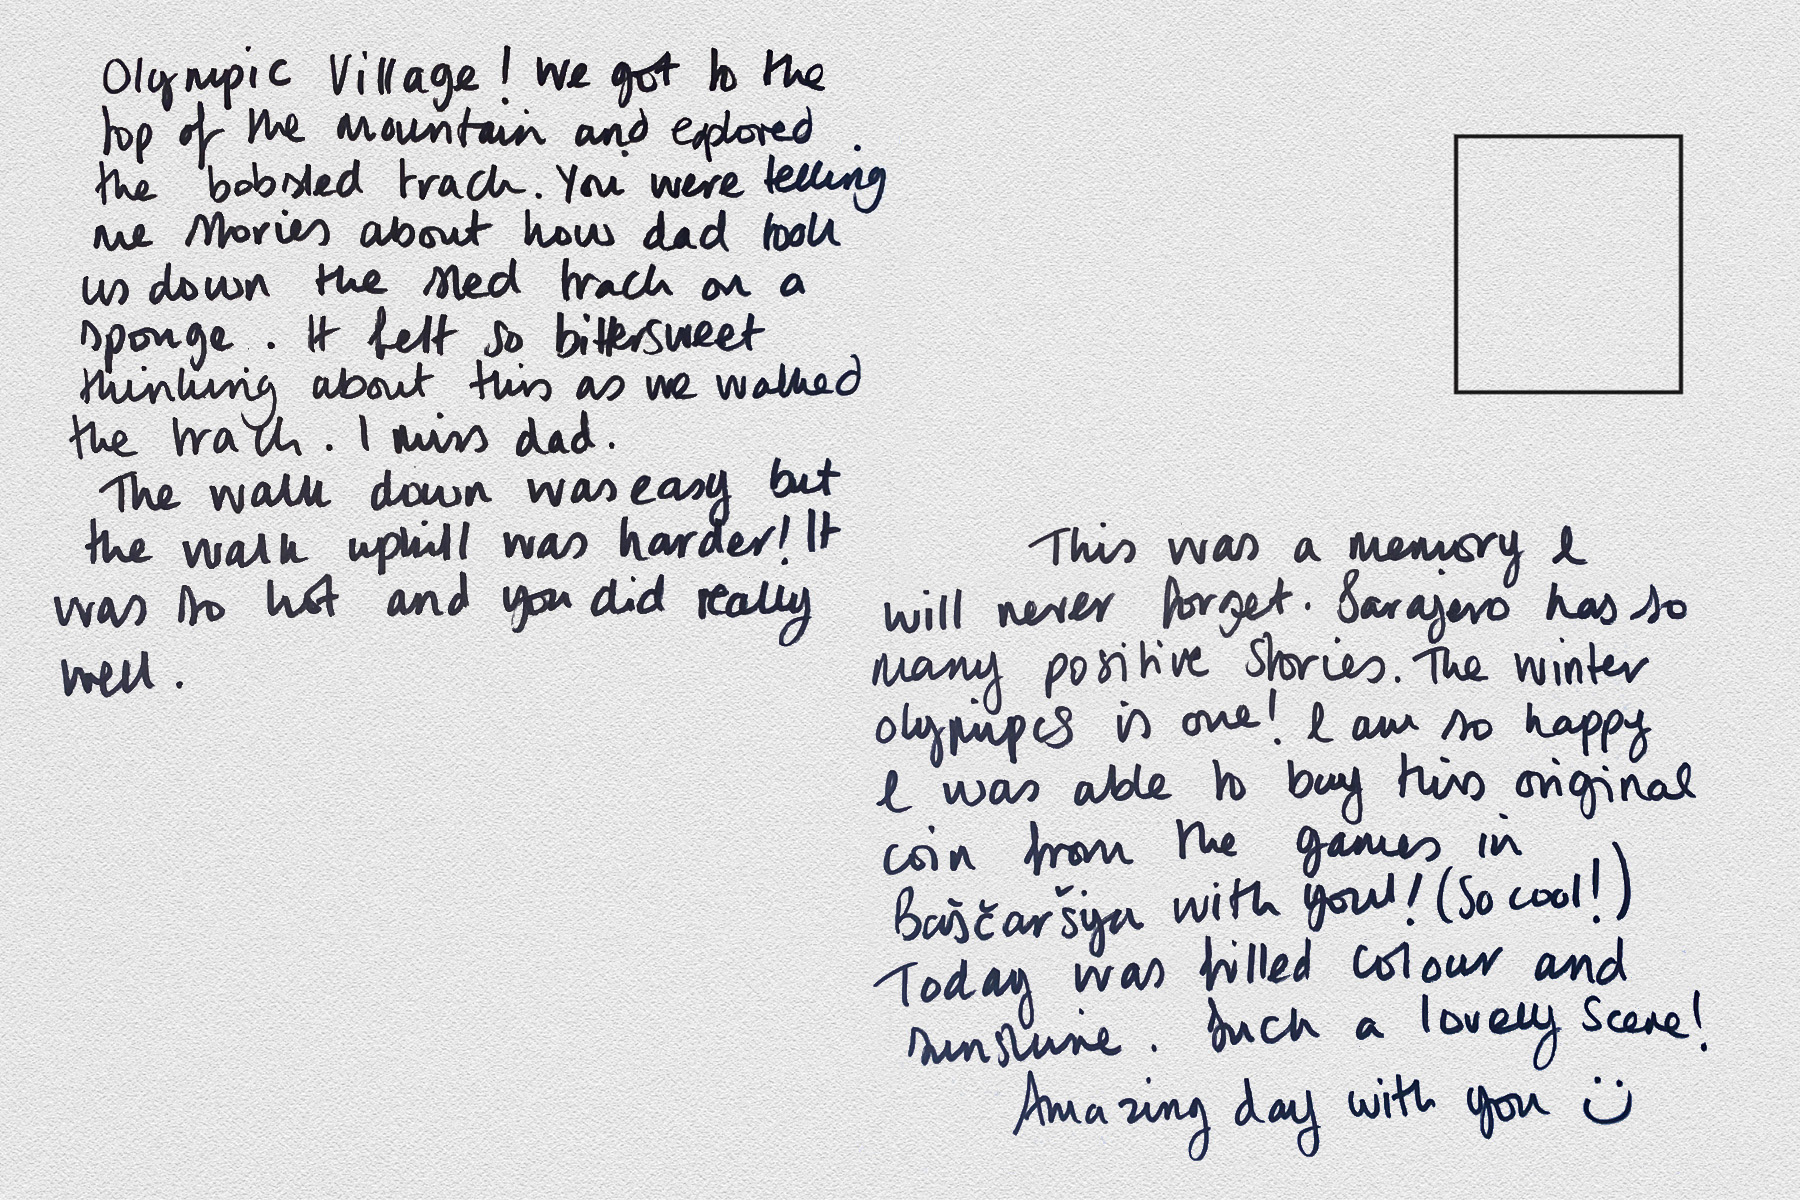 Olympic Village! We got to the
top of the mountain and eplored
the bobsled track. You were telling
me stories about how dad took
us down the sled track on a
sponge. It felt so bittersweet
thinking about this as we walked
the track. I miss dad.
The walk down was easy but
the walk uphill was harder! It
was so hot and you did really
well.
This was a memory I
will never forget. Sarajevo has so
many positive stories. The winter
olympics is one! I am so happy
I was able to buy this original
coin from the games in
Baščaršija with you! (So cool!)
Today was filled colour and
sunshine. Such a lovely scene!
Amazing day with you :)